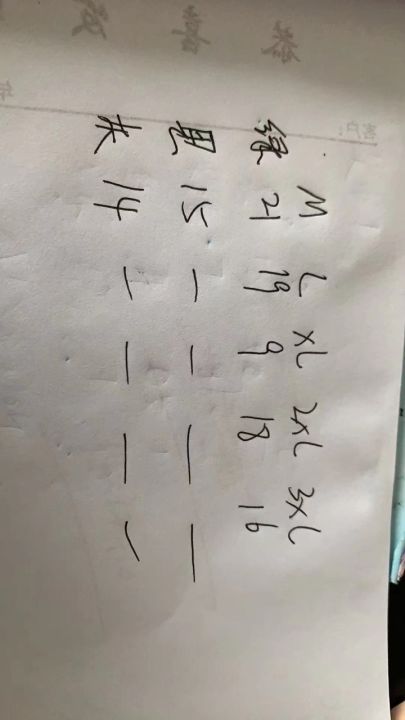 M L XL 2XL 3XL
绿 21 19 9 18 16
黑 15 — — — —
灰 14 — — — —